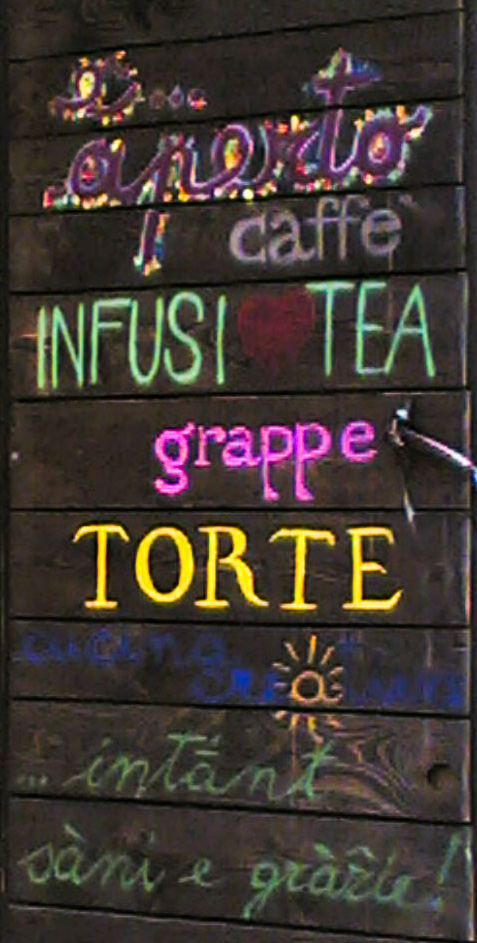 è...
aperto
caffè
INFUSI TEA
grappe
TORTE
cucina
creativa
... intãnt
sàni e gràzie!